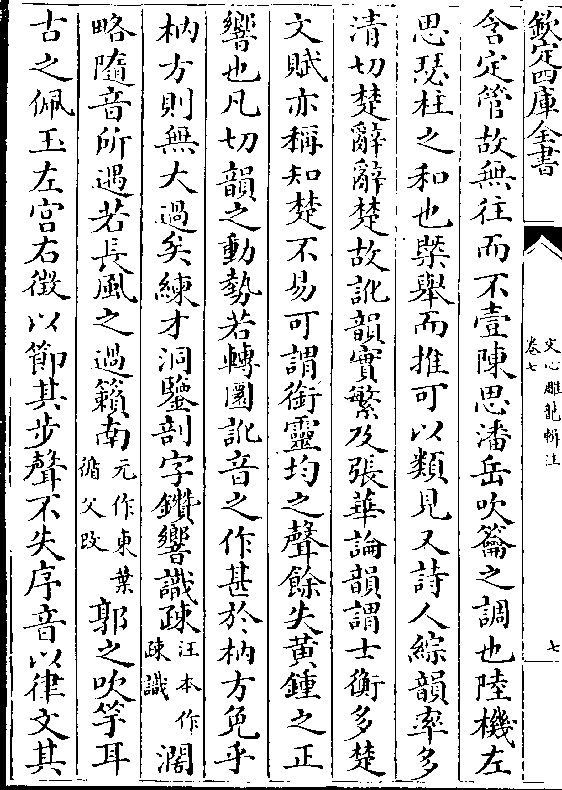 欽定四庫全書
文心雕龍輯注
卷七
七
含定管故無往而不壹陳思潘岳吹籥之調也陸機左
思瑟柱之和也槩舉而推可以類見又詩人綜韻率多
清切楚辭辭楚故訛韻實繁及張華論韻謂士衡多楚
文賦亦稱知楚不易可謂銜靈均之聲餘失黃鍾之正
響也凡切韻之動勢若轉圜訛音之作甚於枘方免乎
枘方則無大過矣練才洞鑒剖字鑽響識疎汪本作疎識濶
略隨音所遇若長風之過籟南元作東葉循父改郭之吹竽耳
古之佩玉左宮右徵以節其步聲不失序音以律文其